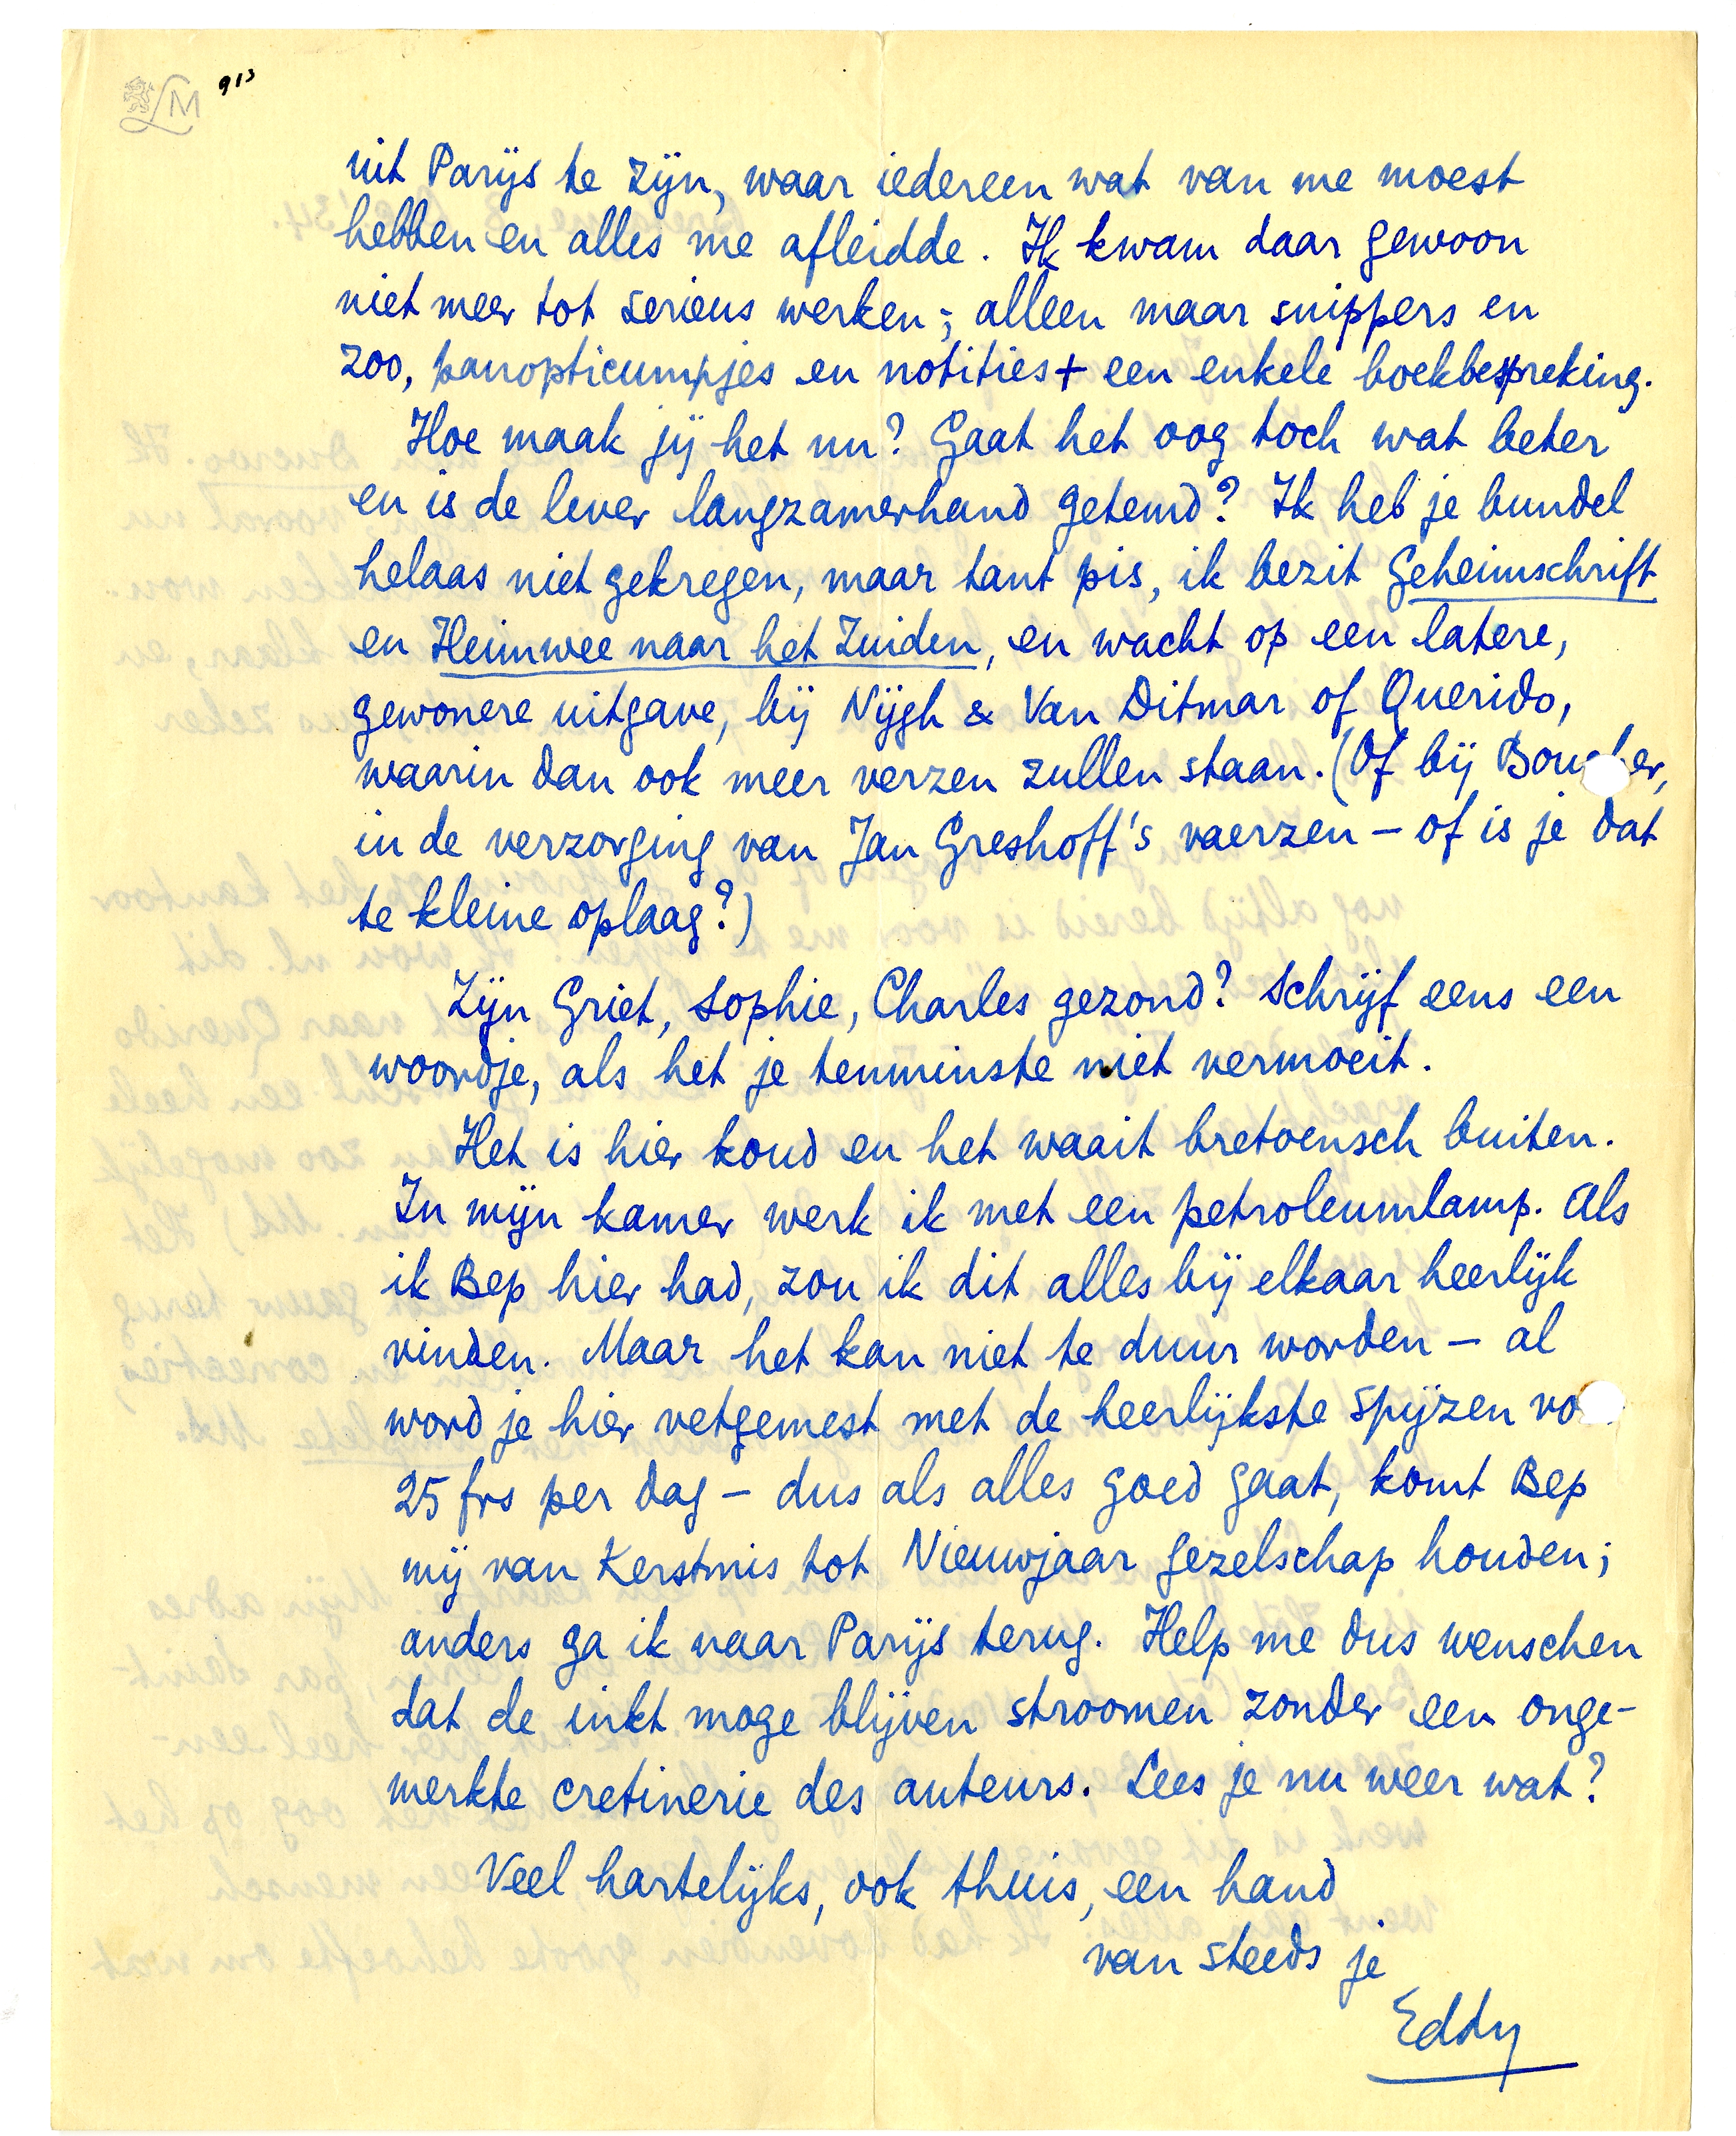 LM 913
uit Parijs te zijn, waar iedereen wat van me moest
hebben en alles me afleidde. Ik kwam daar gewoon
niet meer tot serieus werken; alleen maar snippers en
zoo, panopticumpjes en notities + een enkele boekbespreking.
Hoe maak jij het nu? Gaat het oog toch wat beter
en is de lever langzamerhand getemd? Ik heb je bundel
helaas niet gekregen, maar tant pis, ik bezit Geheimschrift
en Heimwee naar het Zuiden, en wacht op een latere,
gewonere uitgave, bij Nijgh & Van Ditmar of Querido,
waarin dan ook meer verzen zullen staan. (Of bij Boucher,
in de verzorging van Jan Greshoff's vaerzen - of is je dat
te kleine oplaag?)
Zijn Griet, Sophie, Charles gezond? Schrijf eens een
woordje, als het je tenminste niet vermoeit.
Het is hier koud en het waait bretoensch buiten.
In mijn kamer werk ik met een petroleumlamp. Als
ik Bep hier had, zou ik dit alles bij elkaar heerlijk
vinden. Maar het kan niet te duur worden - al
word je hier vetgemest met de heerlijkste spijzen vo
25 frs per dag - dus als alles goed gaat, komt Bep
mij van Kerstmis tot Nieuwjaar gezelschap houden;
anders ga ik naar Parijs terug. Help me dus wenschen
dat de inkt moge blijven stroomen zonder een onge-
merkte cretinerie des auteurs. Lees je nu weer wat?
Veel hartelijks, ook thuis, een hand
van steeds je
Eddy